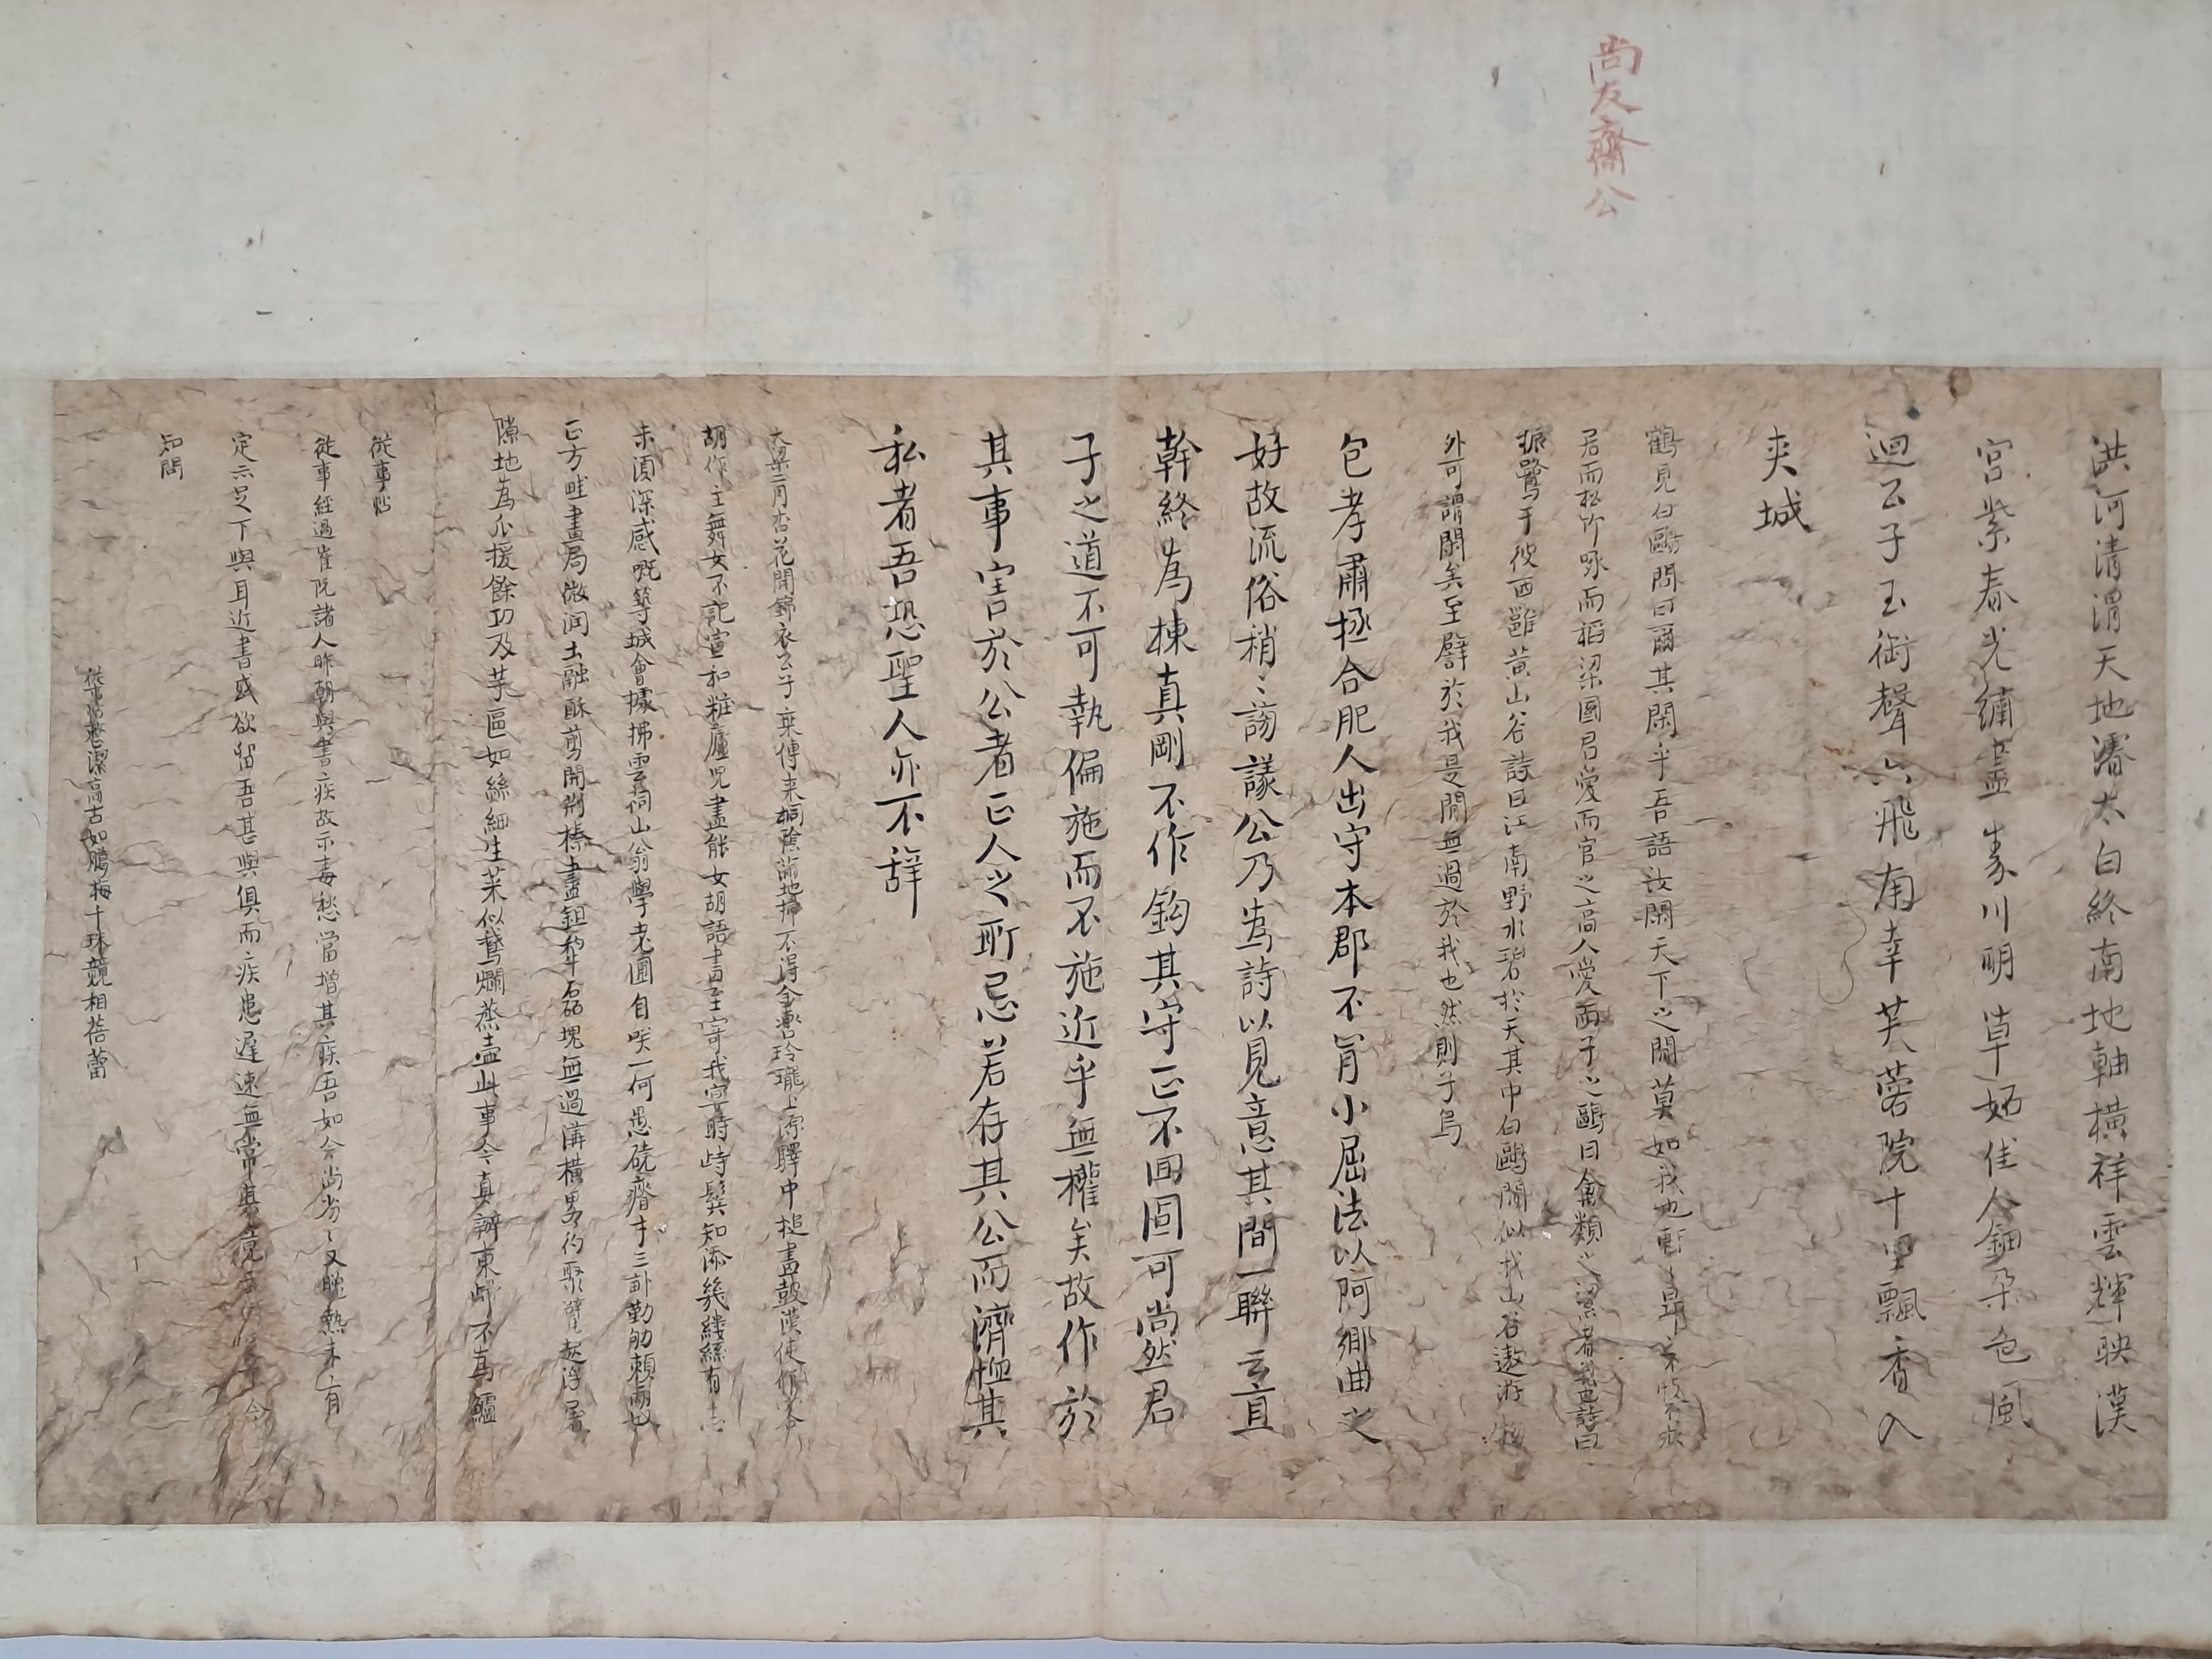 尚友齋公
洪河清渭天地濬太白終南地軸橫祥雲輝映漢
宮紫春光繡畫秦川明草妬佳人鈿朶色風
迴公子玉銜聲六飛南幸芙蓉院十里飄香入
夾城
鶴見白鷗問曰爾其閑乎吾語汝閑天下之閑莫如我也
居而松竹啄而稻梁國君愛而官之高人愛而子之鷗曰禽類之潔者我也詩曰
振鷺于彼西雝黃山谷詩曰江南野水碧於天其中白鷗閑似我山谷遨游
外可謂閑矣至譬於我是閑無過於我也然則子烏
包孝肅拯合肥人出守本郡不肯小屈法以阿鄉曲之
好故流俗稍〻謗議公乃爲詩以見意其間一聯云直
幹終爲棟真剛不作鈎其守正不回固可尚然君
子之道不可執偏施而不施近乎無權矣故作於
其事害於公者正人之所忌若存其公而濟極其
私者吾恐聖人亦不辭
大梁二月杏花開錦衣公子乘傳来桐陰滿地掃不得金轡玲瓏上源驛中搥畫鼓漢使作客
胡作主舞女不記宣和粧廬兒盡能女胡語書至寄我宴時時鬂知添幾縷絲有志
未須深感嘅築城會據拂雲祠山翁學老圃自咲一何愚磽瘠才三畝勤劬賴兩奴
正方畦畫局微润土融酥剪開荆榛盡鉏犂磊塊無過溝橫畧彴聚甓起浮屠
隙地爲瓜援餘功及芋區如絲細生菜似鴦爛蒸壺此事今真辦東歸不爲鱸
従事帖
従事經過崔阮諸人昨朝與書疾故示毒愁當增其疾吾如今尚劣〻又胜熱未有
定示足下與耳近書感欲留吾甚與俱而疾患遲速無常其竟
知問
従事帖整潔高古如鵬梅十珠競相蓓蕾